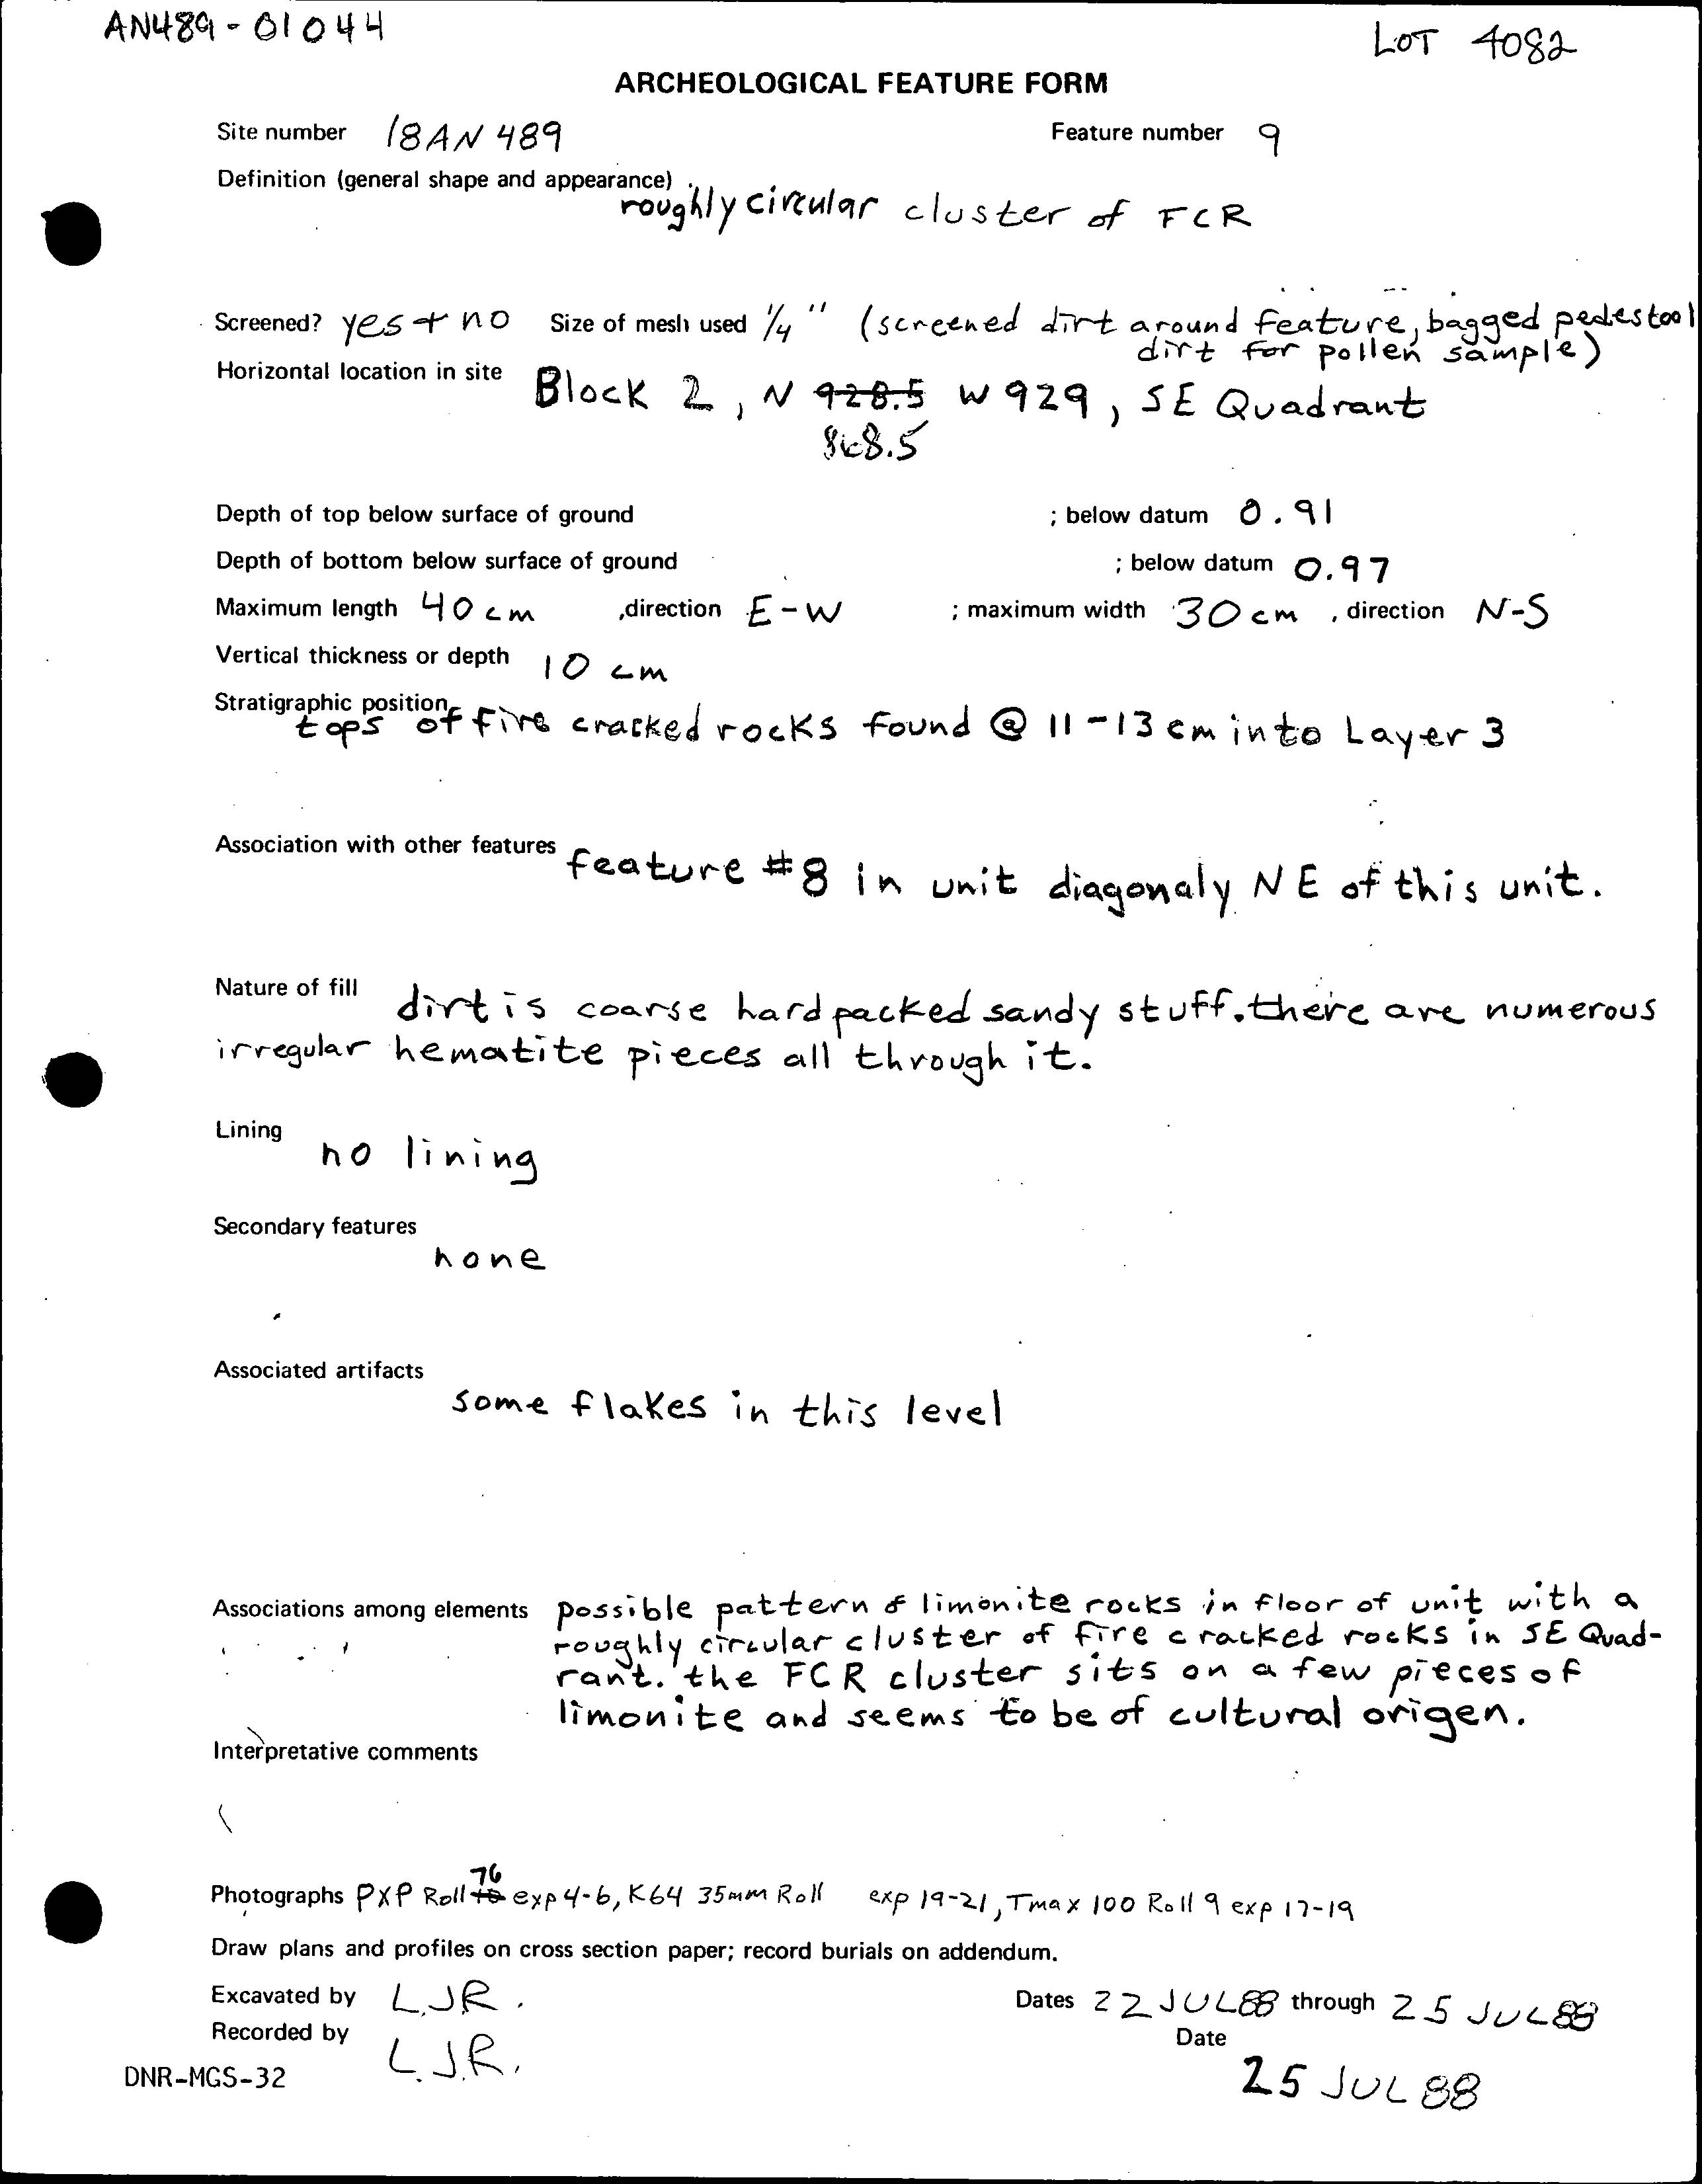 AN489-01044
LOT 4082
ARCHEOLOGICAL FEATURE FORM
Site number 18AN 489 Feature number 9
Definition (general shape and appearance) roughly circular cluster of FCR
Screened? yes + no Size of mesh used 1/4" (screened dirt around feature, bagged pedestool
dirt for pollen sample)
Horizontal location in site Block 2, N 928.5 W 929, SE Quadrant
868.5
Depth of top below surface of ground ; below datum 0.91
Depth of bottom below surface of ground ; below datum 0.97
Maximum length 40 cm ,direction E-W ; maximum width 30 cm , direction N-S
Vertical thickness or depth 10 cm
Stratigraphic position tops of fire cracked rocks found @ 11-13 cm into Layer 3
Association with other features feature #8 in unit diagonaly NE of this unit.
Nature of fill dirt is coarse hard packed sandy stuff. there are numerous
irregular hematite pieces all through it.
Lining no lining
Secondary features none
Associated artifacts some flakes in this level
Associations among elements possible pattern of limonite rocks in floor of unit with a
roughly circular cluster of fire cracked rocks in SE Quad-
rant. the FCR cluster sits on a few pieces of
limonite and seems to be of cultural origen.
Interpretative comments
76
Photographs PXP Roll exp 4-6, K64 35mm Roll exp 19-21, Tmax 100 Roll 9 exp 17-19
Draw plans and profiles on cross section paper; record burials on addendum.
Excavated by L.J.R. Dates 22 JUL 88 through 25 JUL 88
Recorded by L.J.R. Date 25 JUL 88
DNR-MGS-32